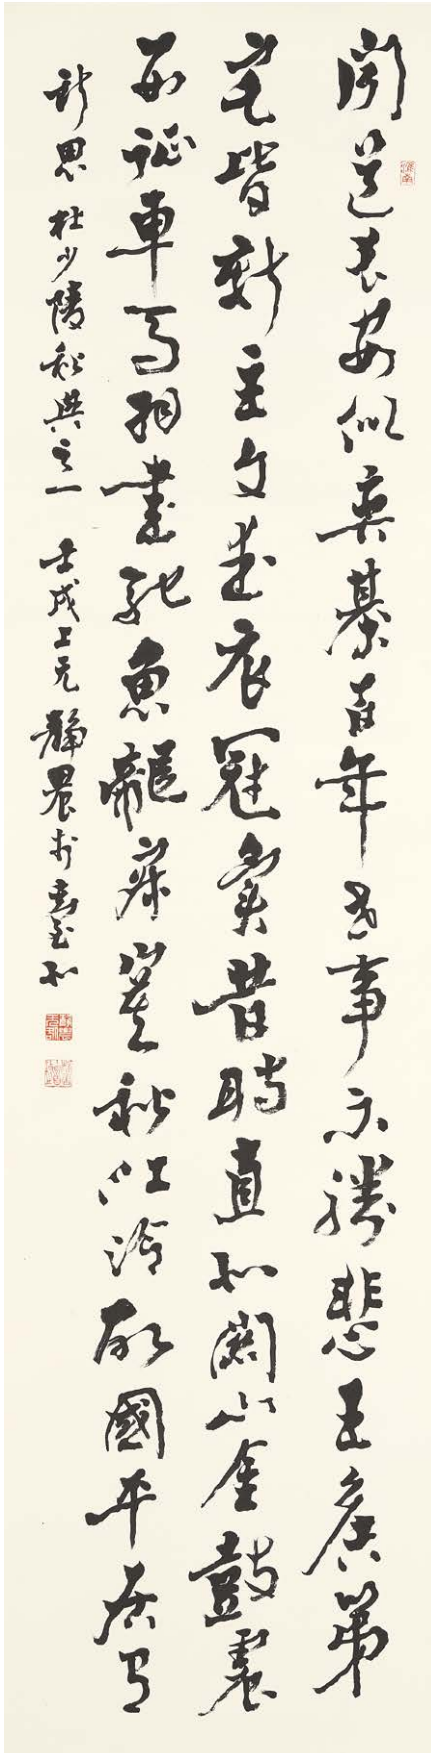 聞道長安似奕棊百年世事不勝悲王侯第
宅皆新主文武衣冠異昔時直北關山金鼓震
西征車馬羽書馳魚龍寂寞秋江冷故國平居有
所思 杜少陵秋興之一 壬戌上元 靜農於臺北